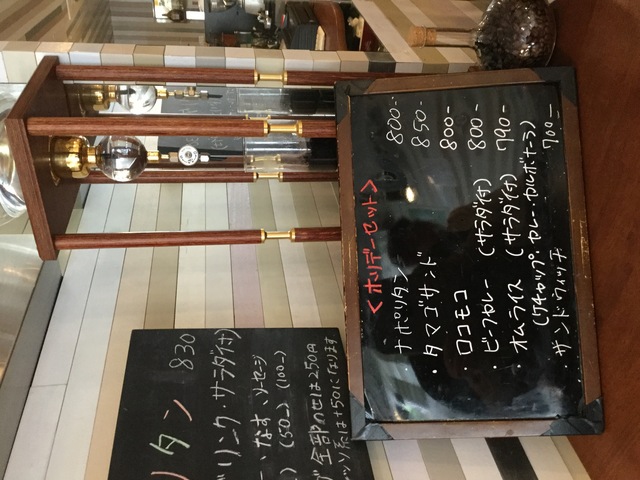 <ホリデーセット>
ナポリタン 800-
・タマゴサンド 850-
・ロコモコ 800-
・ビーフカレー (サラダ付) 800-
・オムライス (サラダ付) 790-
(ケチャップ・カレー・カルボナーラ)
・サンドウィッチ 700-
タン 830
ドリンク・サラダ付)
なす、ソセージ
(50-) (100-)
全部のせは250円
ッソ系は+50になります